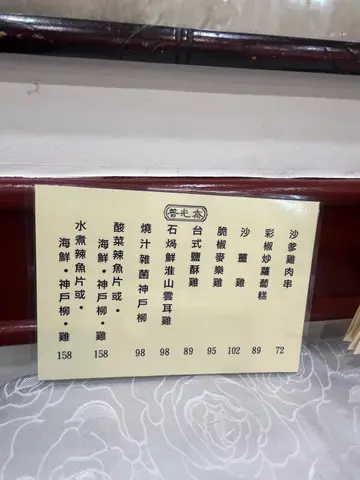 普光齋
沙爹雞肉串 72
彩椒炒蘿蔔糕 89
沙薑雞 102
脆椒麥樂雞 95
台式鹽酥雞 89
石焗鮮淮山雲耳雞 98
燒汁雜菌神戶柳 98
酸菜辣魚片或・
海鮮・神戶柳・雞 158
水煮辣魚片或・
海鮮・神戶柳・雞 158